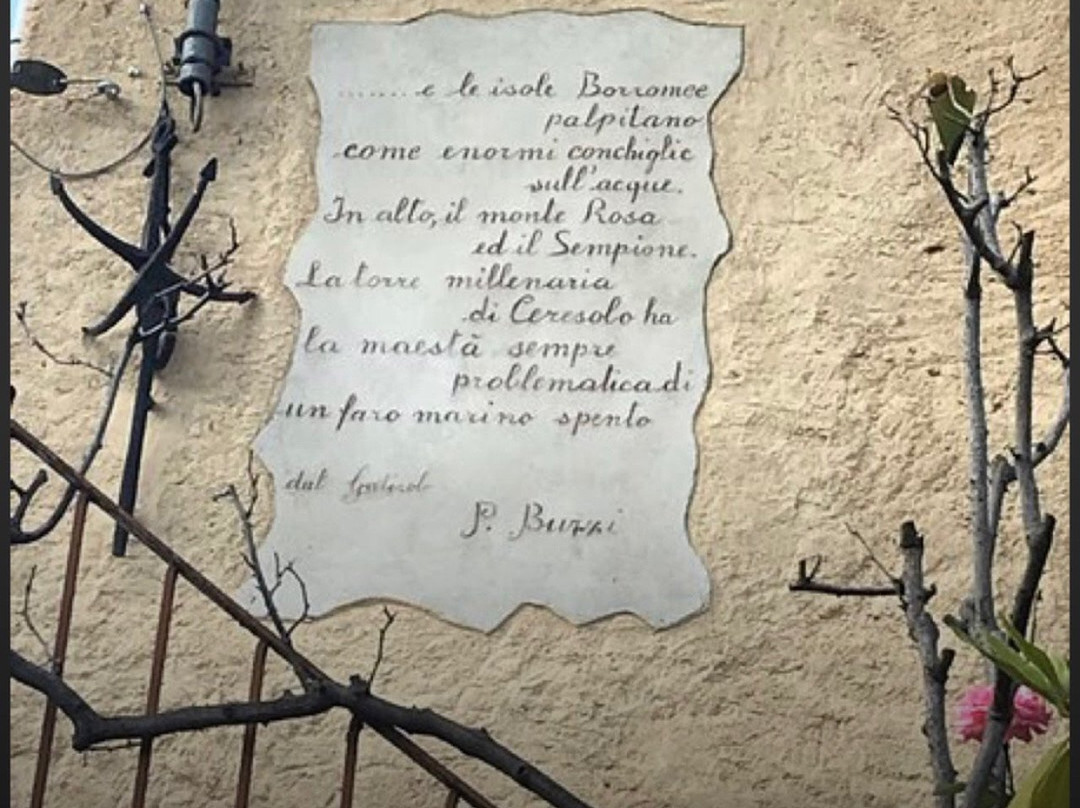 ........e le isole Borromee
palpitano
come enormi conchiglie
sull'acque.
In alto, il monte Rosa
ed il Sempione.
La torre millenaria
di Ceresolo ha
la maestà sempre
problematica di
un faro marino spento
dal
P. Buzzi